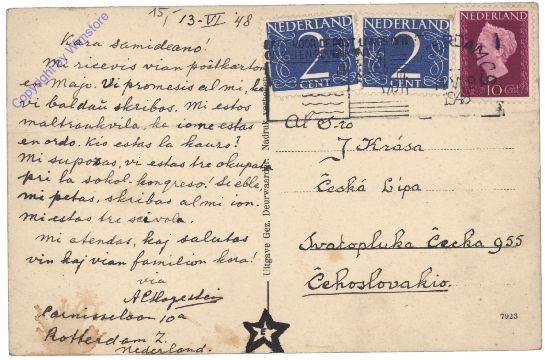 15,- 13-VI '48
Kara samideano.
Mi ricevis vian poŝtkarton
en Majo. Vi promesis al mi, ke
vi baldaŭ skribos. Mi estos
maltrankvila, ke io ne estas
en ordo. Kio estas la kaŭzo?
Mi supozas, vi estas tre okupata
pri la sokol-kongreso! Se eble,
mi petas, skribas al mi ion.
mi estas tre scivola.
Mi atendas, kaj salutas
vin kaj vian familion kora!
via
Carnisselaan 10a
Rotterdam Z.
Nederland.
Copyright by Wemstore
Uitgave Gez. Deurwaarder. Nadruk
NEDERLAND
2
CENT
NEDERLAND
2
CENT
NEDERLAND
10 Cent
1948
Al S-ro
J Krása
Česká Lípa
Svatopluka Čecha 955
Čehoslovakio.
7923
E